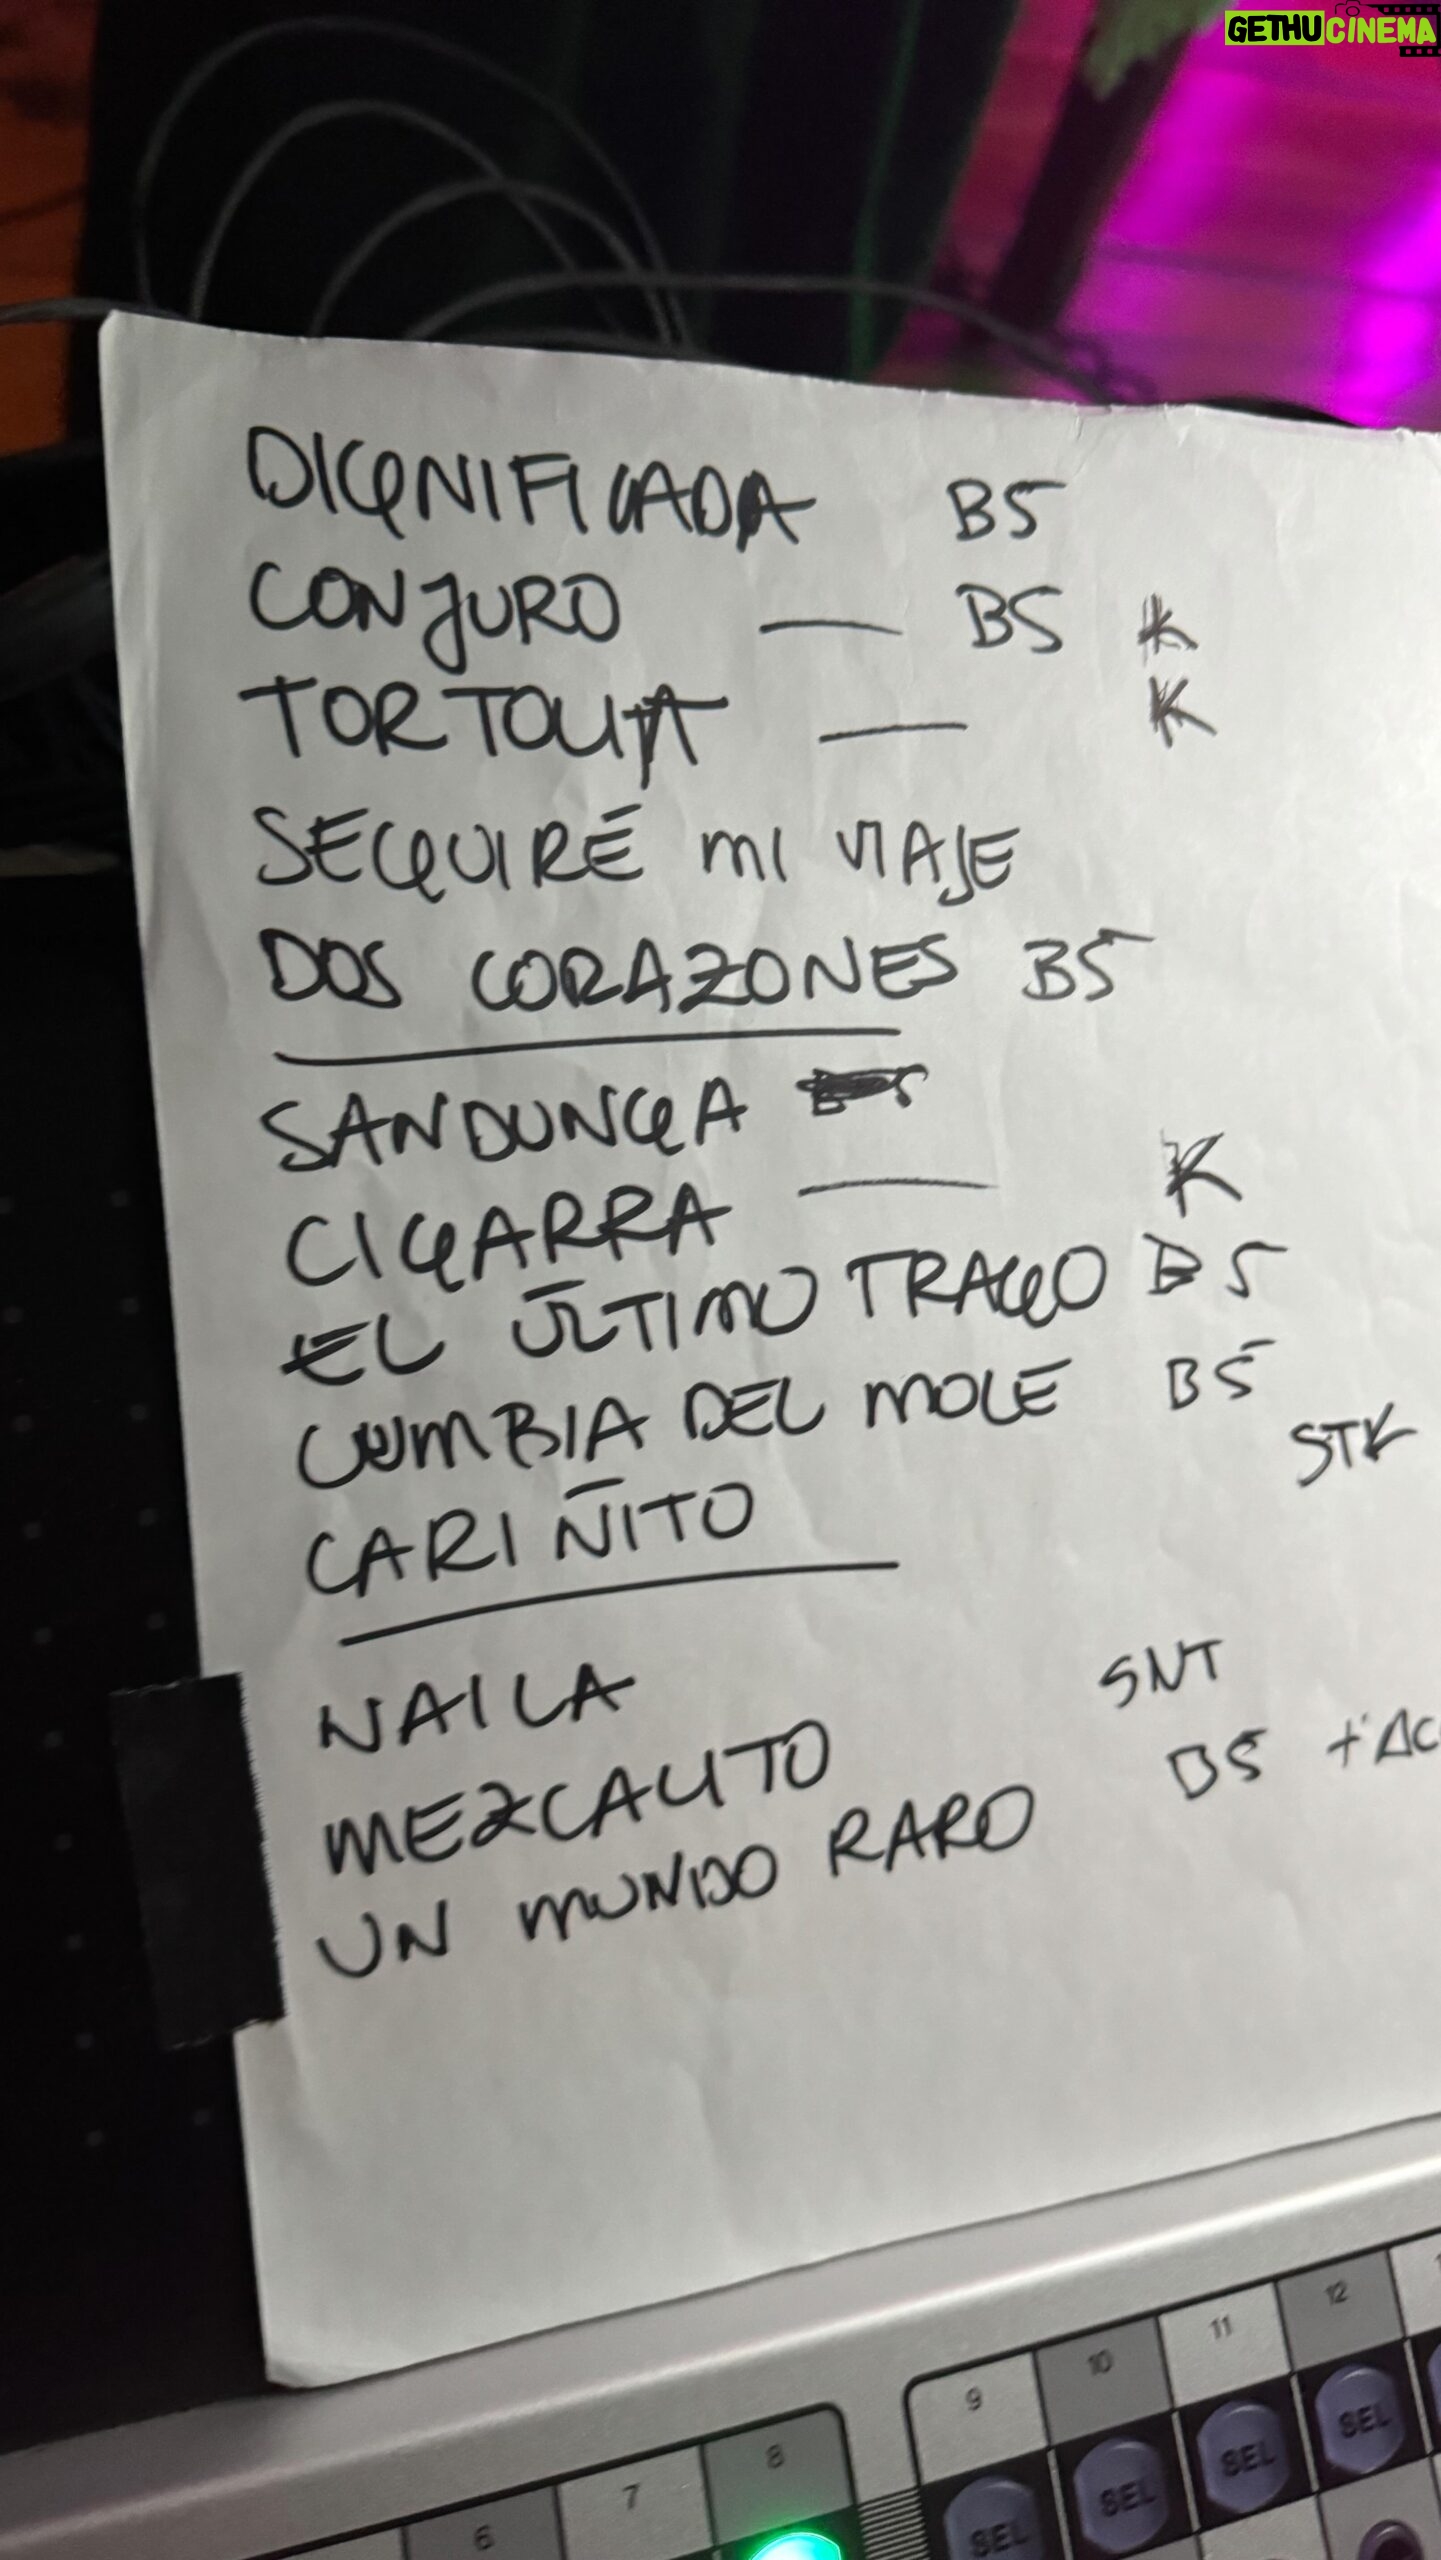 GETHUCINEMA
DIGNIFICADA B5
CONJURO — B5 K
TORTOLITA — K
SEGUIRÉ MI VIAJE
DOS CORAZONES B5
SANDUNGA
CIGARRA — K
EL ÚLTIMO TRAGO B5
CUMBIA DEL MOLE B5
CARIÑITO STK
NAILA SNT
MEZCALITO B5 +AC
UN MUNDO RARO
6 7 8 9 10 11 12
SEL SEL SEL SEL